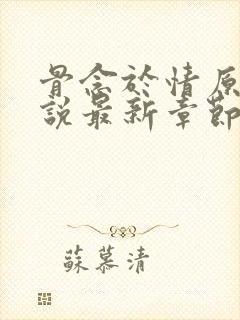 骨念於情原
說最新章節
蘇慕清